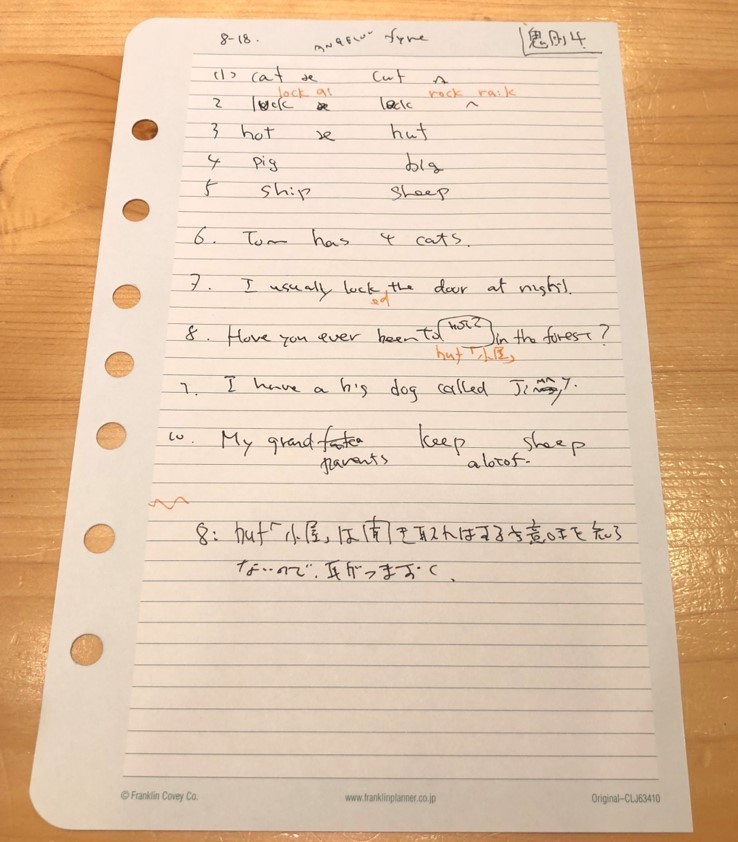 8-18. 鬼刷4
(1) cat æ cut ʌ
lock rock
2 lock æ lock ^
3 hot æ hut
4 pig big
5 ship sheep
6. Tom has 4 cats.
7. I usually lock the door at night.
ed
8. Have you ever been to hot? in the forest?
hut「小屋」
9. I have a big dog called Jimmy.
10. My grand keep sheep
parents a lot of.
8: hut「小屋」は 音
ないので、耳がつまずく。
© Franklin Covey Co. www.franklinplanner.co.jp Original-CLJ63410